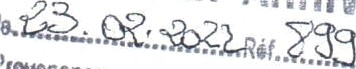 23.02.2022 Réf. 899